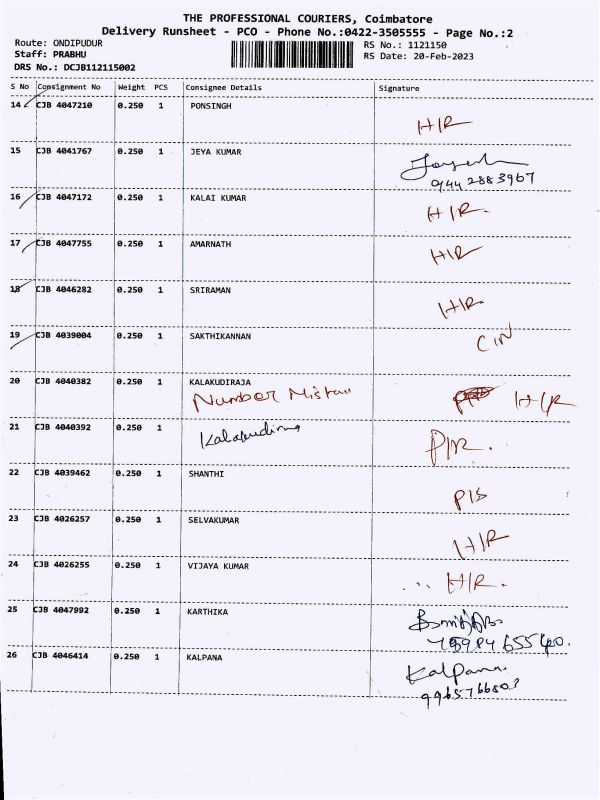 THE PROFESSIONAL COURIERS, Coimbatore
Delivery Runsheet - PCO - Phone No.:0422-3505555 - Page No.:2
Route: ONDIPUDUR
Staff: PRABHU
DRS No.: DCJB112115002
RS No.: 1121150
RS Date: 20-Feb-2023
S No Consignment No Weight PCS Consignee Details Signature
14 CJB 4047210 0.250 1 PONSINGH
H/R
15 CJB 4041767 0.250 1 JEYA KUMAR
9442883967
16 CJB 4047172 0.250 1 KALAI KUMAR
H/R.
17 CJB 4047755 0.250 1 AMARNATH
H/R
18 CJB 4046282 0.250 1 SRIRAMAN
H/R.
19 CJB 4039004 0.250 1 SAKTHIKANNAN
C/N
20 CJB 4040382 0.250 1 KALAKUDIRAJA
Number H/R
21 CJB 4040392 0.250 1
P/R.
22 CJB 4039462 0.250 1 SHANTHI
P/S
23 CJB 4026257 0.250 1 SELVAKUMAR
H/R
24 CJB 4026255 0.250 1 VIJAYA KUMAR
H/R.
25 CJB 4047992 0.250 1 KARTHIKA
26 CJB 4046414 0.250 1 KALPANA
Kalpana.